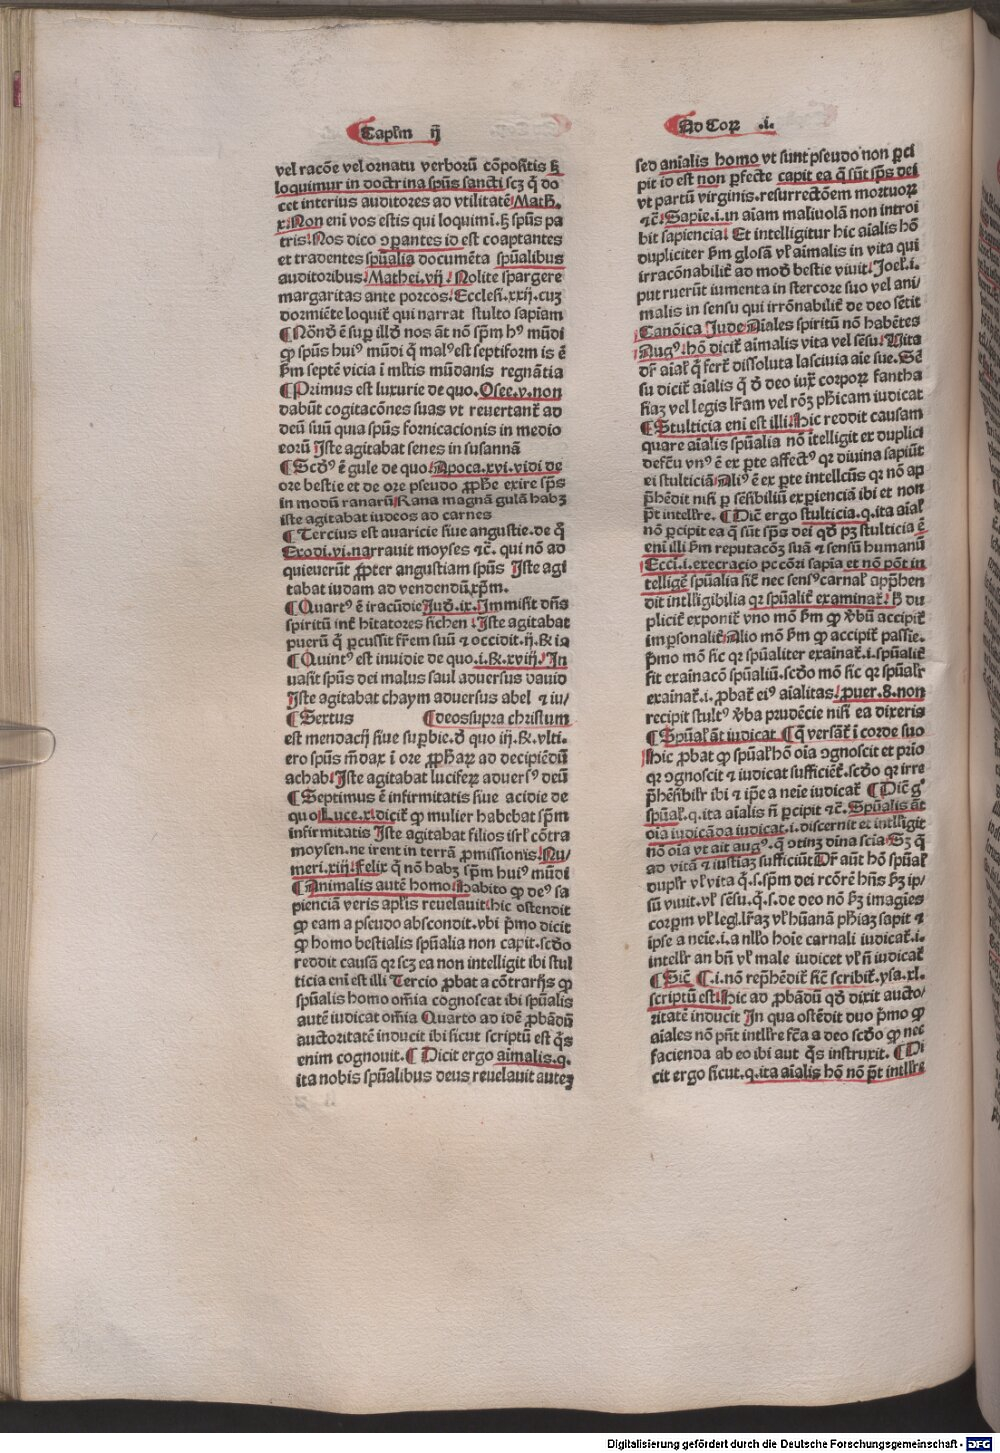 Caplm ij
vel racōe vel ornatu verborū cōpositis ꝫ
loquimur in doctrina spūs sancti scꝫ q̄ do
cet interius auditores ad vtilitatē Math.
x. Non eni vos estis qui loquimi.ꝫ spūs pa
tris. Nos dico ꝯꝑantes id est coaptantes
et tradentes spūalia documēta spūalibus
auditoribus. Mathei.vij. Nolite spargere
margaritas ante porcos. Ecclesi.xxij. cuꝫ
dormiēte loquit̄ qui narrat stulto sapiam
¶ Nōnd ē suꝑ illd nos aūt nō sp̄m hꝰ mūdi
ꝙ spūs huiꝰ mūdi q̄ malꝰ est septiform is ē
ẜm septē vicia ī mltis mūdanis regnātia
¶ Primus est luxurie de quo. Osee.v. non
dabūt cogitacōnes suas vt reuertant̄ ad
deū suū quia spūs fornicacionis in medio
eorū Iste agitabat senes in susannā
¶ Scdꝰ ē gule de quo. Apoca.xvi. vidi de
ore bestie et de ore pseudo ꝓphe exire sp̄s
in modū ranarū Rana magnā gulā habꝫ
iste agitabat iudeos ad carnes
¶ Tercius est auaricie siue angustie. de q̄
Exodi.vi. narrauit moyses ⁊c̄. qui nō ad
quieuerūt ꝓpter angustiam spūs Iste agi
tabat iudam ad vendendū xp̄m.
¶ Quartꝰ ē iracūdie Iud.ix. Immisit dn̄s
spiritū int̄ hītatores sichen. Iste agitabat
puerū q̄ ꝑcussit frēm suū ⁊ occidit.ij.R iꝫ
¶ Quintꝰ est inuidie de quo.i.R.xviij. In
uasit spūs dei malus saul aduersus dauid
Iste agitabat chaym aduersus abel ⁊ iu/
¶ Sextus ¶ deos supra christum
est mendacij siue suꝑbie. d̄ quo iij.R. vlti.
ero spūs mēdax ī ore ꝓpharꝝ ad decipiēdū
achab. Iste agitabat luciferꝝ aduersꝰ deū
¶ Septimus ē infirmitatis siue acidie de
quo Luce.x. dicit̄ ꝙ mulier habebat sp̄m
infirmitatis Iste agitabat filios isrl̄ cōtra
moysen. ne irent in terrā ꝓmissionis. Nu/
meri.xiij. Felix q̄ nō habꝫ sp̄m huiꝰ mūdi
¶ Animalis autē homo. Habito ꝙ deꝰ sa
pienciā veris aplis reuelauit. hic ostendit
ꝙ eam a pseudo abscondit. vbi p̄mo dicit
ꝙ homo bestialis spūalia non capit. scdo
reddit causā qꝛ scꝫ ea non intelligit ibi stul
ticia eni est illi Tercio ꝓbat a cōtrarijs ꝙ
spūalis homo omīa cognoscat ibi spūalis
autē iudicat omīa Quarto ad idē ꝓbādū
auctoritatē inducit ibi sicut scriptū est q̄s
enim cognouit. ¶ Dicit ergo aīmalis.q.
ita nobis spūalibus deus reuelauit auteꝫ
Ad Corꝝ .i.
sed anīalis homo vt sunt pseudo non ꝑci
pit id est non ꝑfecte capit ea q̄ sūt sp̄s dei
vt partū virginis. resurrectōem mortuorꝝ
⁊c̄. Sapie.i. in aīam maliuolā non introi
bit sapiencia. Et intelligitur hic aīalis hō
dupliciter ẜm glosā vl̄ aīmalis in vita qui
irracōnabilit̄ ad mod̄ bestie viuit. Joel.i.
putruerūt iumenta in stercore suo vel ani/
malis in sensu qui irrōnabilit̄ de deo sētit
Canōica Jude Aīales spiritū nō habētes
Augꝰ. hō dicit̄ aīmalis vita vel sēsu. Vita
dr̄ aial̄ q̄ fert̄ dissoluta lasciuia aīe sue. Sē
su dicit̄ aīalis q̄ d̄ deo iux̄ corporꝝ fantha
siaꝫ vel legis lr̄am vel rōꝫ ph̄icam iudicat
¶ Stulticia eni est illi. Hic reddit causam
quare aīalis spūalia nō ītelligit ex duplici
defc̄u vnꝰ ē ex ꝑte affectꝰ qꝛ diuina sapiūt
ei stulticiā. Aliꝰ ē ex ꝑte intellcūs qꝛ nō ap
p̄hēdit nisi ꝑ sēsibiliū exꝑienciā ibi et non
pt̄ intellr̄e. ¶ Dic̄ ergo stulticia.q. ita aial̄
nō ꝑcipit ea q̄ sūt sp̄s dei qd̄ pꝫ stulticia ē
enī illi ẜm reputacōꝫ suā ⁊ sensū humanū
Ecci.i. execracio pccōri sapīa et nō pōt in
tellige̅ spūalia sic̄ nec sensꝰ carnal̄ app̄hen
dit intlligibilia qꝛ spūalit̄ examinat̄. ẜ du
plicit̄ exponit̄ vno mō ẜm ꝙ v̄bū accipit̄
impersonalit̄. Alio mō ẜm ꝙ accipit̄ passie.
p̄mo mō sic qꝛ spūaliter exainat̄.i. spūalit̄
fit exainacō spūaliū. scdo mō sic qꝛ spūalr̄
exainat̄.i. ꝓbat̄ eiꝰ aīalitas. puer.8. non
recipit stultꝰ v̄ba prudēcie nisi ea dixeris
¶ Spūal̄ aūt iudicat ¶ q̄ versat̄ ī corde suo
Hic ꝓbat ꝙ spūal̄ hō oīa ꝯgnoscit et prīo
qꝛ ꝯgnoscit ⁊ iudicat sufficiēt̄. scdo qꝛ irre
p̄hēsibilr̄ ibi ⁊ ip̄e a neīe iudicat̄ ¶ Dic̄ gͦ
spūal̄.q. ita aīalis n̄ ꝑcipit ⁊c̄. Spūalis āt
oīa iudicāda iudicat.i. discernit et intlligit
nō oīa vt ait augꝰ. q̄ ꝯtinꝫ dīna scīa. Sꝫ q̄
ad vitā ⁊ iusticiaꝫ sufficiūt Dr̄ aūt hō spūal̄
duplr̄ vl̄ vita q̄.s. sp̄m dei rcōrē hn̄s ꝫ ip/
sū viuit. vl̄ sēsu.q̄.s. de deo nō ẜꝫ imagīes
corpꝝ vl̄ legꝫ lr̄aꝫ vl̄ hūanā ph̄iaꝫ sapit ⁊
ip̄se a neīe.i. a nllo hoīe carnali iudicat̄.i.
intellr̄ an bn̄ vl̄ male iudicet vl̄ n̄ iudicat̄
¶ Sic̄ ¶.i. nō rep̄hēdit̄ sic̄ scribit̄. ysa.xl.
scriptū est. Hic ad ꝓbādū qd̄ dixit aucto/
ritatē inducit In qua ostēdit duo p̄mo ꝙ
aīales nō pn̄t intllr̄e fc̄a a deo scdo ꝙ nec
facienda ab eo ibi aut q̄s instruxit. ¶ Di
cit ergo sicut.q. ita aīalis hō nō pt̄ intllr̄e
Digitalisierung gefördert durch die Deutsche Forschungsgemeinschaft - DFG